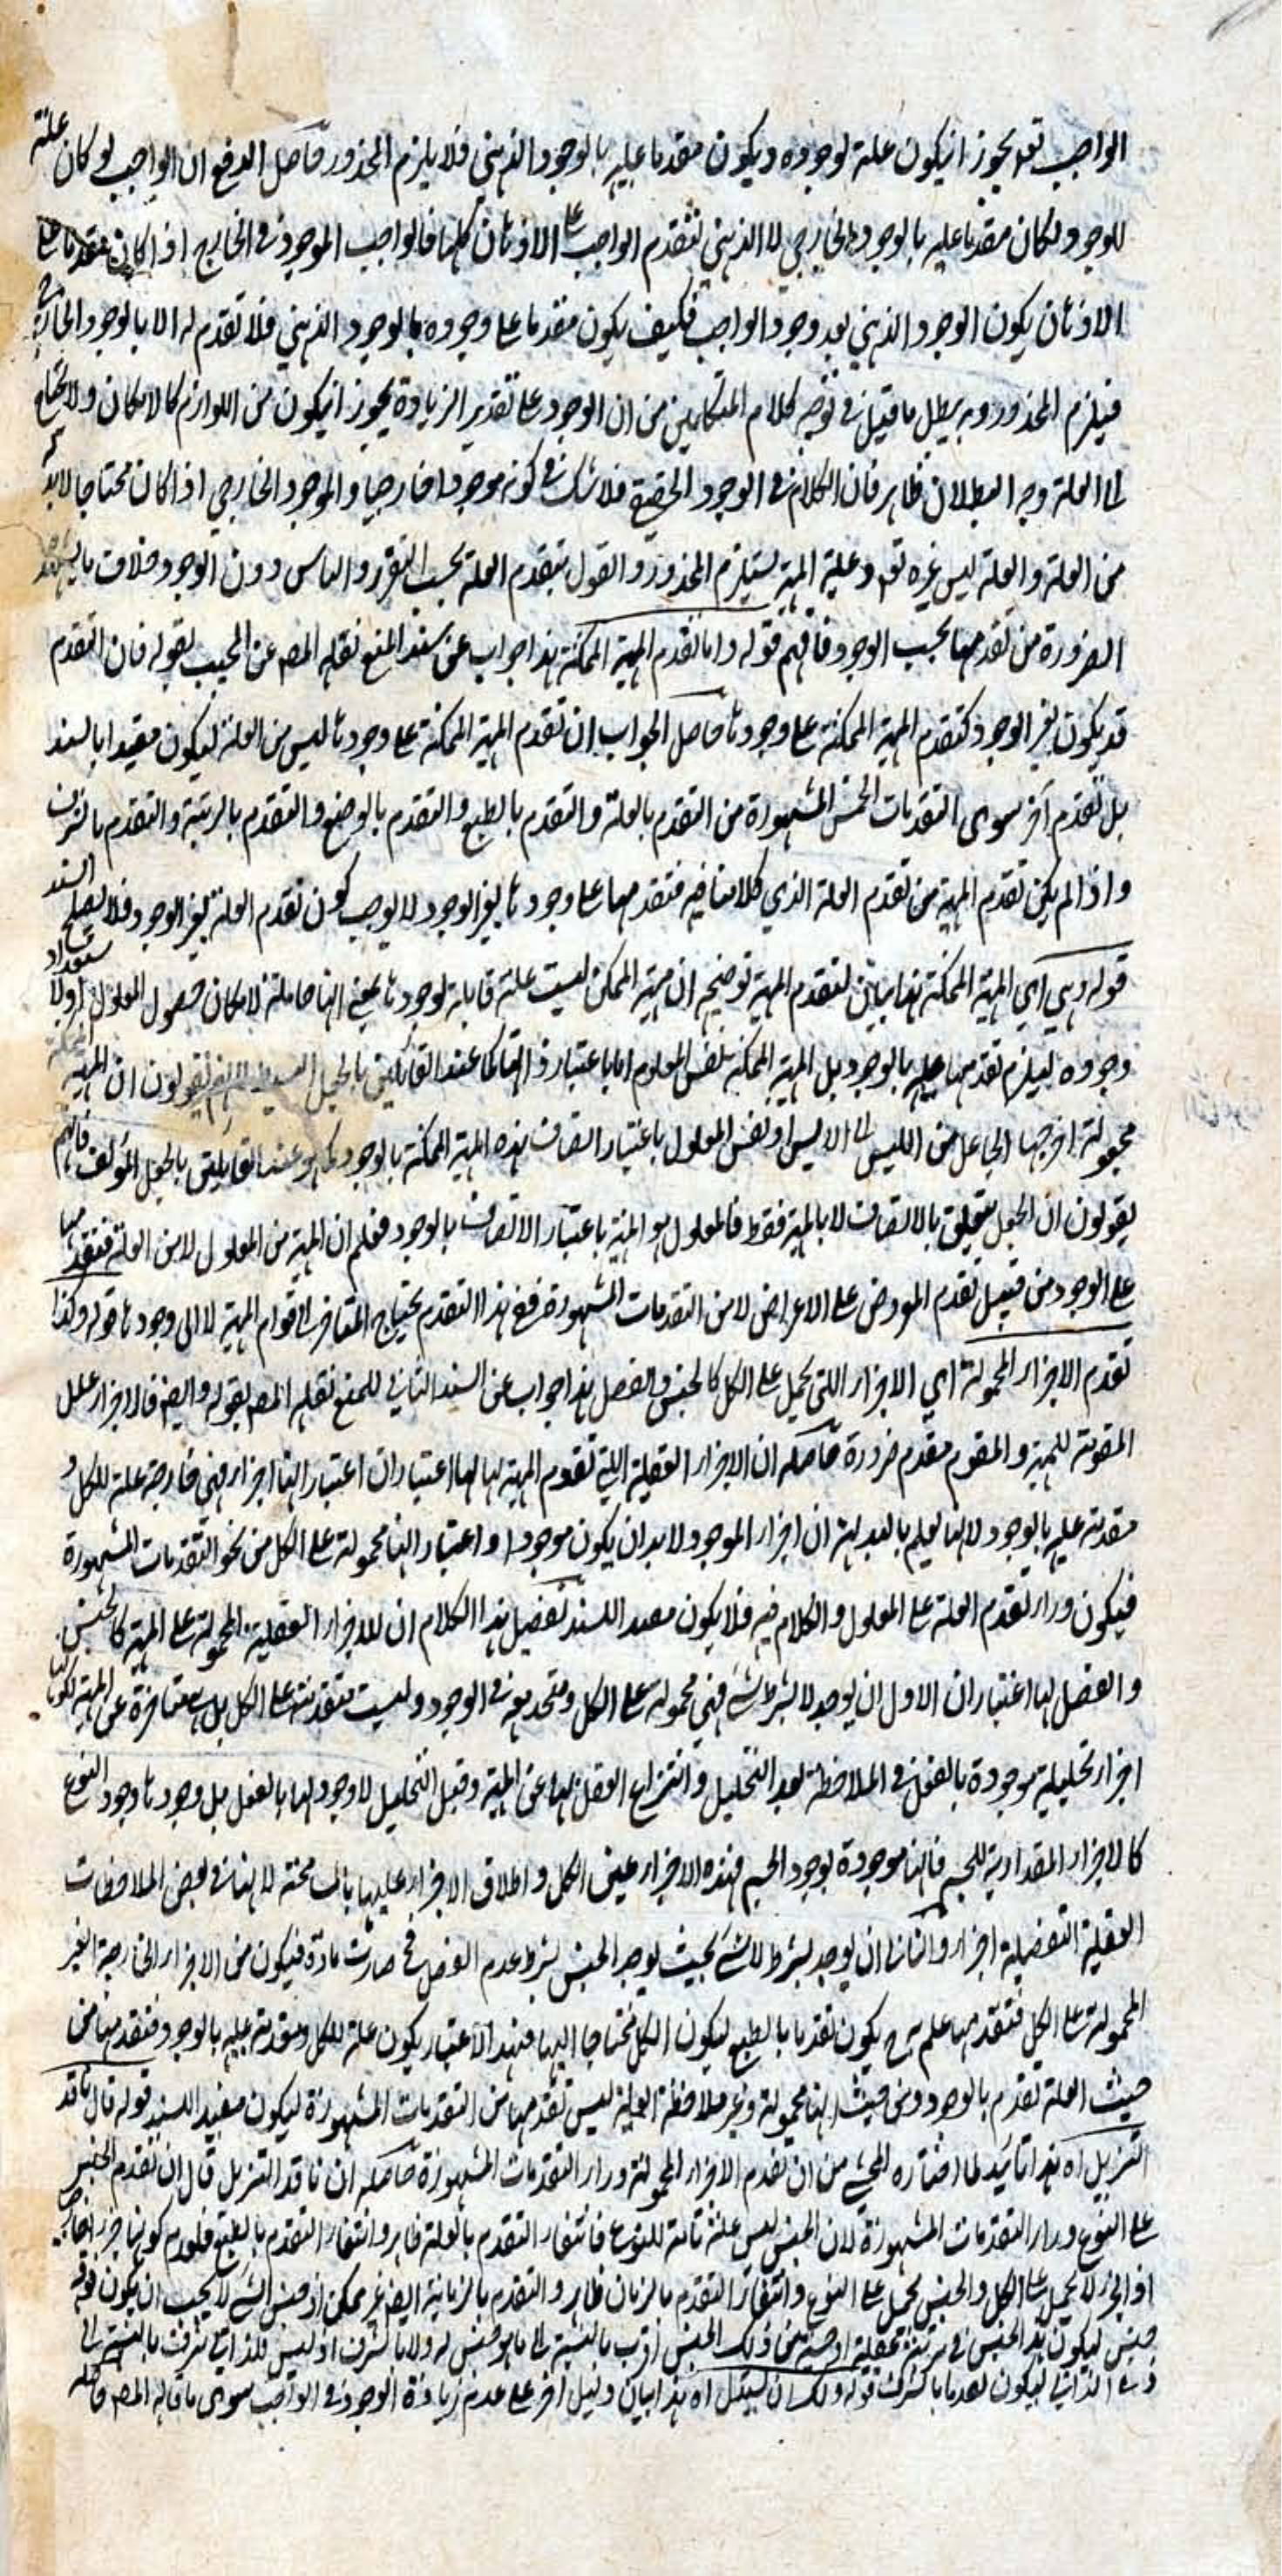 الواجب تعه يجوز انيكون علة لوجوده ويكون متقدما عليه بالوجود الذهني فلا يلزم المحذور وحاصل الدفع ان الواجب لو كان علته
للوجود ولكان متقدما عليه بالوجود الخارجي لا الذهني لتقدم الواجب على الاذهان كلها فالواجب الموجود في الخارج اذا كان متقدما على
الاذهان يكون الوجود الذهني بعد وجود الواجب فكيف يكون متقدما على وجوده بالوجود الذهني فلا تقدم له الا بالوجود الخارجي
فيلزم المحذور وبه يبطل ما قيل في توجيه كلام المتكلمين من ان الوجود على تقدير الزيادة يجوز انيكون من اللوازم كالامكان ولا يحتاج
الى العلة وجه البطلان ظاهر فان الكلام في الوجود الحقيقي فلا شك في كونه موجودا خارجيا والموجود الخارجي اذا كان محتاجا لا بد له
من العلة والعلة ليس غيره تعه وعلية المهية يستلزم المحذور والقول بتقدم العلة بحسب التقرر والماس دون الوجود خلاف ما يشهد
الضرورة من تقدمها بحسب الوجود فافهم قوله واما تقدم المهية الممكنة هذا جواب عن سند المنع نقله المص عن المجيب بقوله فان التقدم
قد يكون بغير الوجود كتقدم المهية الممكنة على وجودها حاصل الجواب ان تقدم المهية الممكنة على وجودها ليس من العلة ليكون مفيدا بالسند
بل تقدم آخر سوى التقدمات الخمس المشهورة من التقدم بالعلة والتقدم بالطبع والتقدم بالوضع والتقدم بالرتبة والتقدم بالشرف
واذا لم يكن تقدم المهية من تقدم العلة الذي كلامنا فيه فتقدمها على وجودها بغير الوجود لا يوجب كون تقدم العلة بغير الوجود فلا يصلح السند
قوله وهي اي المهية الممكنة هذا بيان لتقدم المهية توضيحه ان مهية الممكن ليست علة قابلة لوجودها بمعنى انها حاملة لامكان حصول المعلول اولا
وجوده ليلزم تقدمها عليه بالوجود بل المهية الممكنة نفس المعلوم اما باعتبار ذاتها كما عند القائلين بالجعل البسيط فانهم يقولون ان المهية الممكنة
مجعولة اخرجها الجاعل من الليس الى الايس او نفس المعلول باعتبار اتصاف هذه المهية الممكنة بالوجود كما هو عند القائلين بالجعل المؤلف فانهم
يقولون ان الجعل يتعلق بالاتصاف لا بالمهية فقط فالمعلول هو المهية باعتبار الاتصاف بالوجود فعلم ان المهية من المعلول لا من العلة فتقدمها
على الوجود من قبيل تقدم المعروض على الاعراض لا من التقدمات المشهورة ففي هذا التقدم يحتاج المتاخر الى قوام المهية لا الى وجودها قوله وكذا
تقدم الاجزاء المحمولة اي الاجزاء اللتي يحمل على الكل كالجنس والفصل هذا جواب عن السند الثاني للمنع نقله المص بقوله وايضا فالاجزاء علل
المقومة للمهية والمقوم متقدم ضرورة حاصله ان الاجزاء العقلية اللتي تقوم المهية بها لها اعتباران اعتبار انها اجزاء فهي خارجة علة للكل و
متقدمة عليه بالوجود لانها يعلم بالبداهة ان اجزاء الموجود لا بد ان يكون موجودا واعتبار انها محمولة على الكل من نحو التقدمات المشهورة
فيكون وراء تقدم العلة على المعلول والكلام فيه فلا يكون مفيدا للسند تفصيل هذا الكلام ان للاجزاء العقلية المحمولة على المهية كالجنس
والفصل لها اعتباران الاول ان يوجد لا بشرط شئ فهي محمولة على الكل ومتحد معه في الوجود وليست متقدمة على الكل بل متاخرة عن المهية لكونها
اجزاء تحليلية موجودة بالفعل في الملاحظة بعد التحليل وانتزاع العقل لها عن المهية وقبل التحليل لا وجود لها بالفعل بل وجودها وجود النوع
كالاجزاء المقدارية للجسم فانها موجودة بوجود الجسم فهذه الاجزاء عين الكل واطلاق الاجزاء عليها بالمسامحة لانها في بعض الملاحظات
العقلية التفصيلية اجزاء والثاني ان يوجد بشرط لا شئ بحيث يوجد الجنس بشرط عدم الفصل فح صارت مادة فيكون من الاجزاء الخارجة الغير
المحمولة على الكل فتقدمها علم ح يكون تقدما بالطبع ليكون الكل محتاجا اليها فبهذا الاعتبار يكون علة للكل ومتقدمة عليه بالوجود فتقدمها من
حيث العلة تقدم بالوجود ومن حيث انها محمولة وغير ملاحظة العلية ليس تقدمها من التقدمات المشهورة ليكون مفيد السند قوله قال ناقد
التنزيل اه هذا تأييد لما اختاره المحشي من ان تقدم الاجزاء المحمولة وراء التقدمات المشهورة حاصله ان ناقد التنزيل قال ان تقدم الجنس
على النوع وراء التقدمات المشهورة لان الجنس ليس علة تامة للنوع فانتفاء التقدم بالعلة ظاهر وانتفاء التقدم بالطبع فلعدم كونها جزء خارجي
اذ الجزء لا يحمل على الكل والجنس يحمل على النوع وانتفاء التقدم بالزمان ظاهر والتقدم بالزمانية ايضا غير ممكن اذ جنس الشئ لا يجب ان يكون فوقه
جنس ليكون هذا الجنس في مرتبة من ذلك الجنس اقرب بالنسبة الى ما هو جنس له ولا بالشرف اذ ليس للذاتي شرف بالنسبة الى
ذي الذاتي ليكون تقدما بالشرف قوله ولك ان تستدل اه هذا بيان دليل آخر على عدم زيادة الوجود في الواجب سوى ما قاله المص حاصله